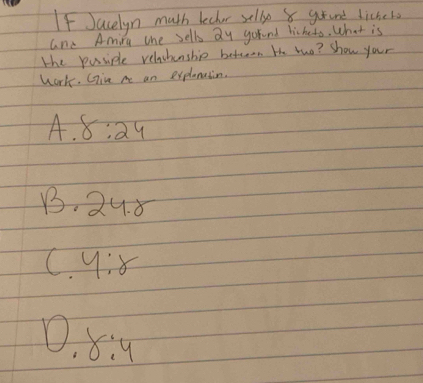 If Jacelyn math techer sells 8 gofund tickets
and Amira she sells 24 gofund tickets. What is
the possible relationship between the two? Show your
work. Give an explanation.
A. 8:24
B. 24:8
C. 4:8
D. 8:4